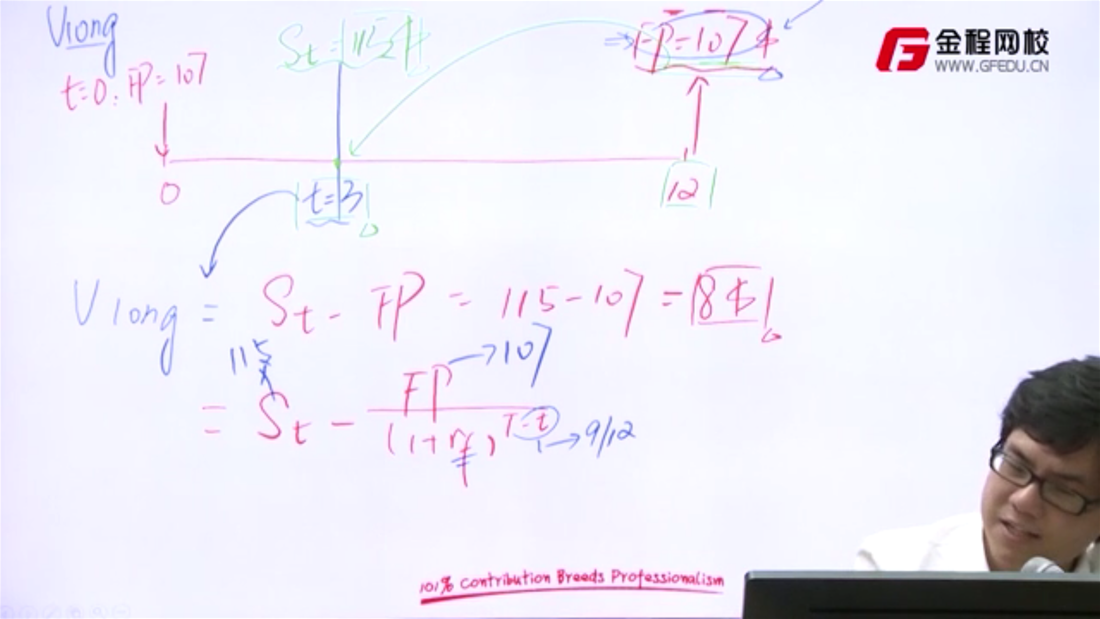 Vlong
St = 115 $
FP = 107 $
金程网校
WWW.GFEDU.CN
t=0: FP = 107
0
t=3
12
Vlong = St - FP = 115 - 107 = 8 $
115
107
= St - FP / (1+rf)^T-t
9/12
101% Contribution Breeds Professionalism